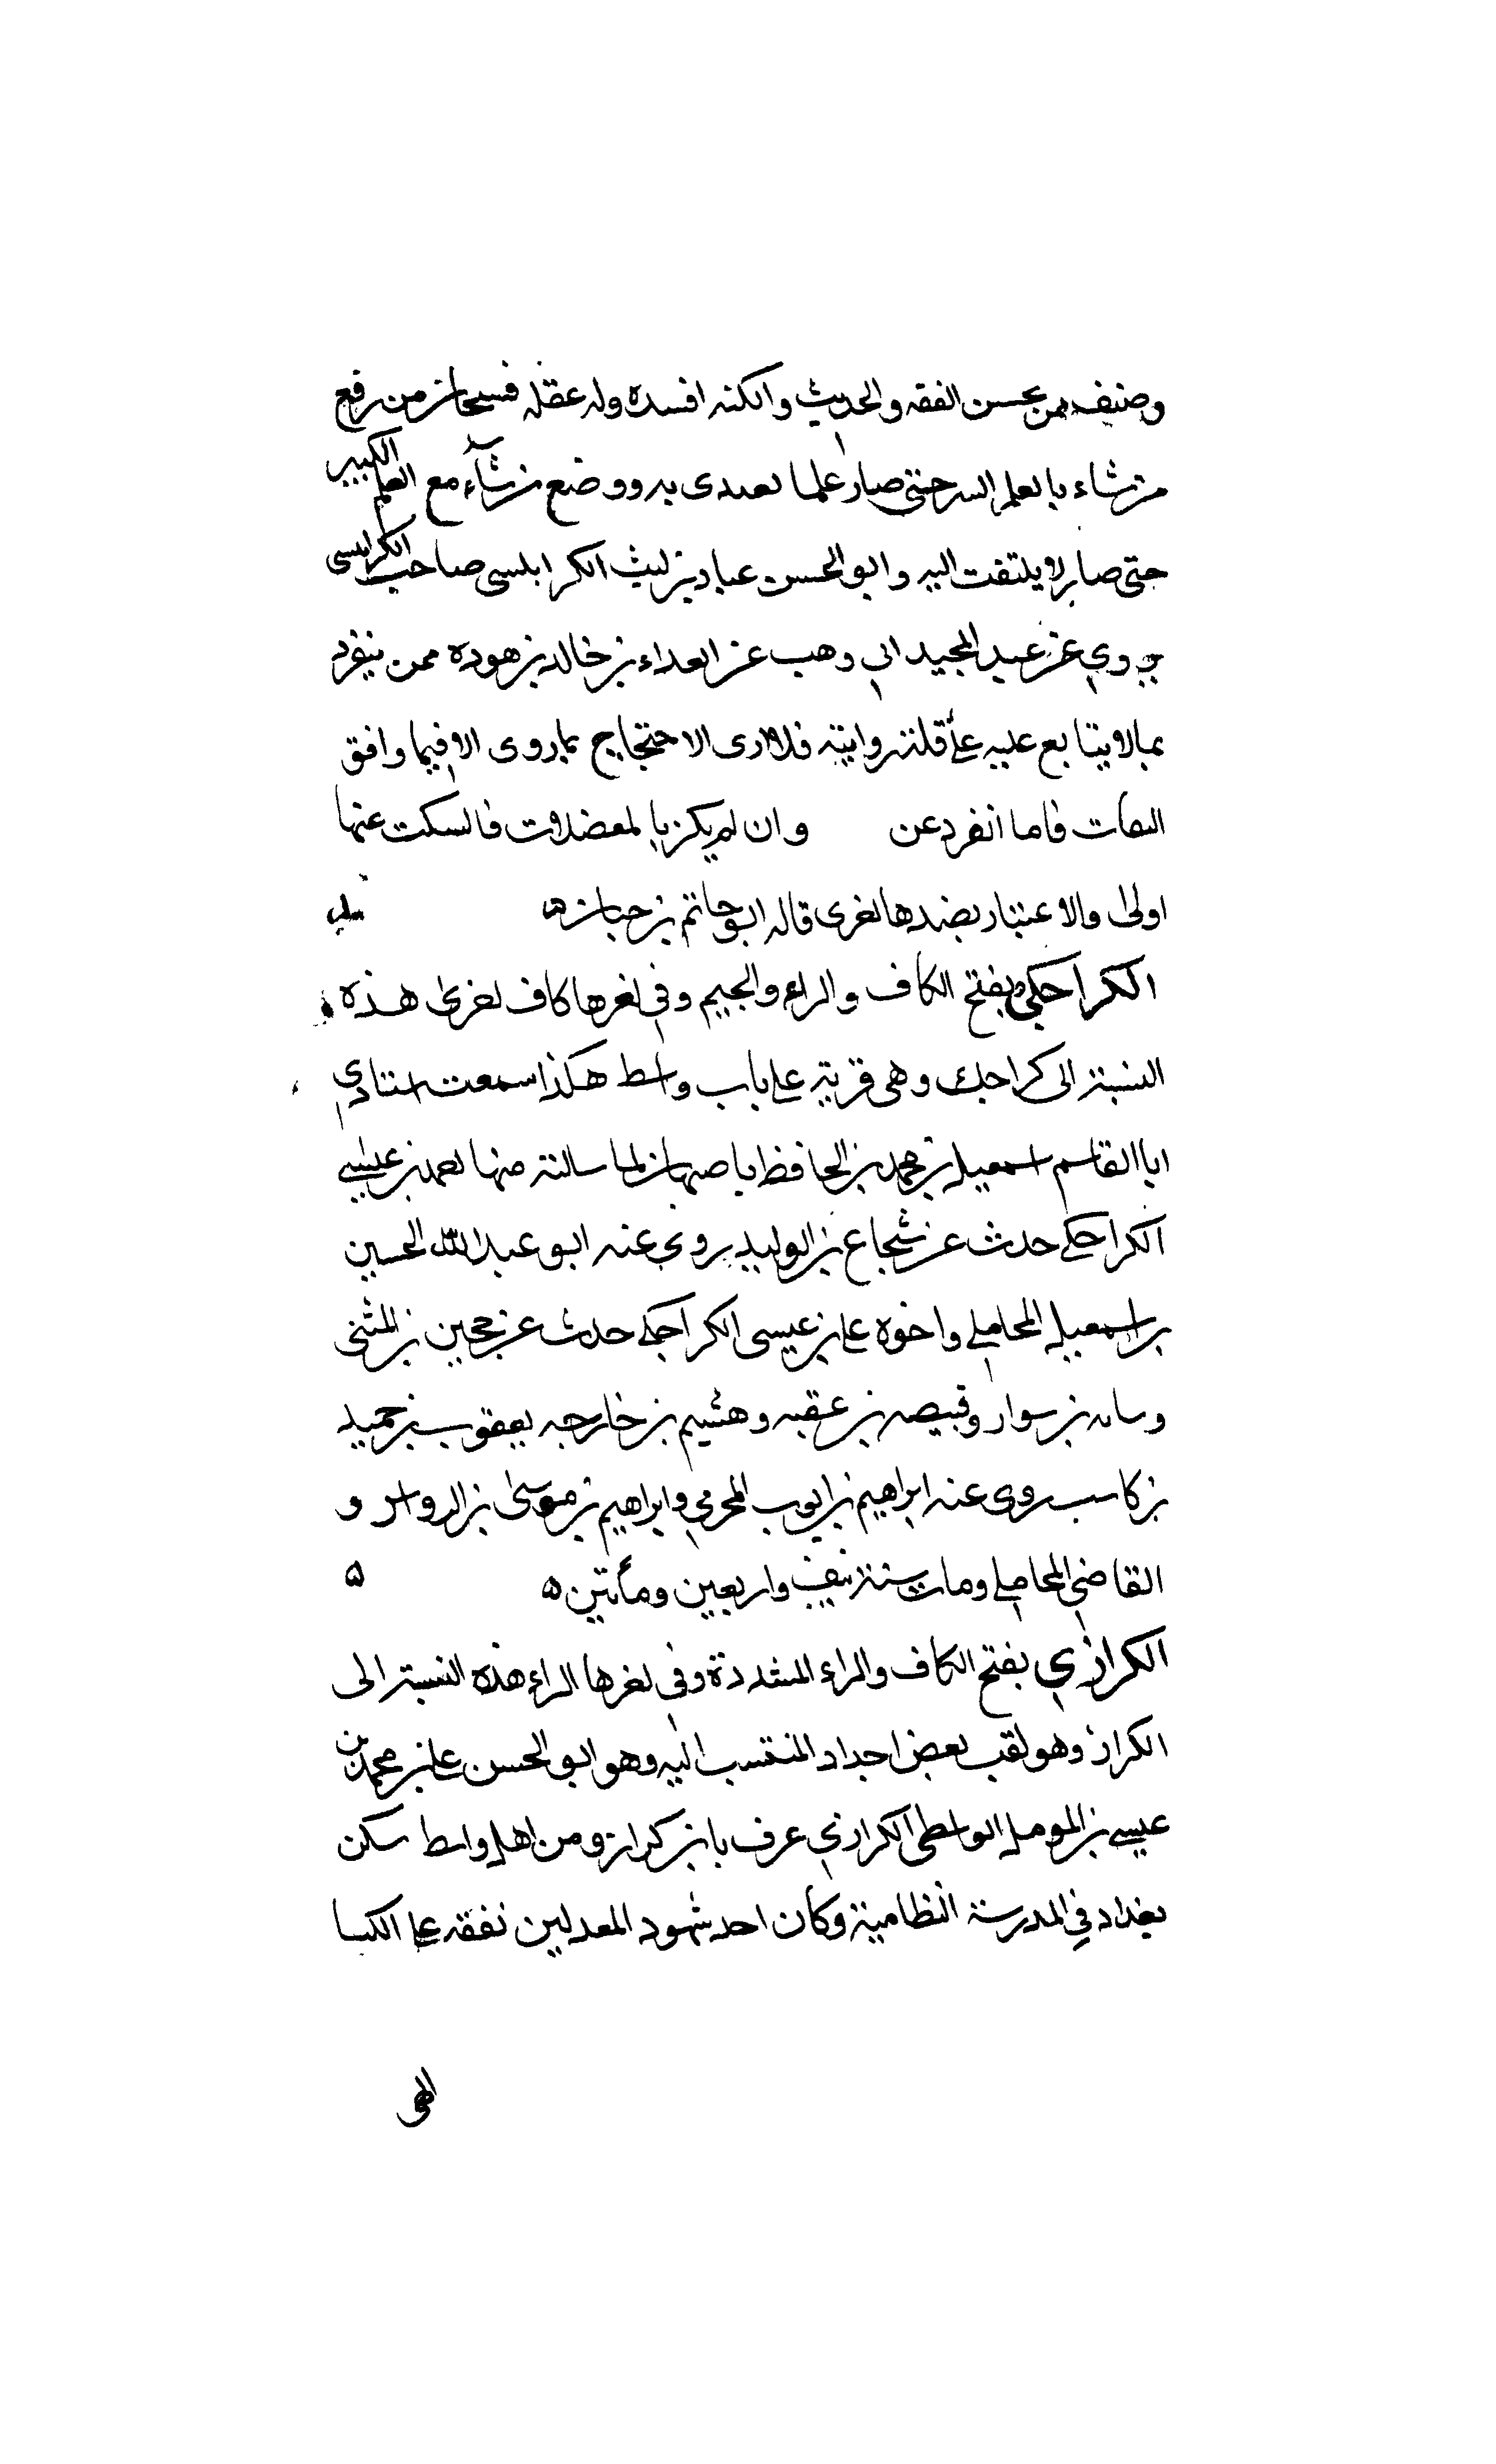 وصنف ممن يحسن الفقه والحديث والكنه افسده وله عقله فسبحان من رفع
من شاء بالعلم السر حتى صار علما يعدى به ووضع من شاء مع العلم الكبير
حتى صار لا يلتفت اليه وابو الحسن عباد بن ليث الكرابلسى صاحب الكرابيسى
يروي عن عبد المجيد ابي وهب عن العداء بن خالد بن هوده ممن ينفرد
بما لا يتابع عليه على قلته روايته فلا ارى الاحتجاج بما روى الا فيما وافق
الثقات فاما انفرد عن وان لم يكن بالمعضلات فالسكت عنها
اولى والاعتبار بضدها لغرى قاله ابو حاتم بن حبان ه
الكراجكى بفتح الكاف والراء والجيم وفى لغرها كاف لغرى هذه
النسبة الى كراجك وهى قرية على باب واسط هكذا سمعت استادي
ابا القاسم اسمعيل بن محمد بن الحافظ باصبهان لما سالته منها لعمد بن عيسى
الكراجكى حدث عن شجاع بن الوليد روى عنه ابو عبد الله الحسين
بن اسمعيل المحاملى واخوه على بن عيسى الكراجكى حدث عن حجين بن المثنى
وسابه بن سوار وقبيصه بن عقبه وهشيم بن خارجه يعقوب بن حميد
بن كاسب روى عنه ابراهيم بن ايوب المخرمي وابراهيم بن موسى بن الرواس و
القاضي المحاملي ومات سنة نيف واربعين ومأتين ه ه
الكرازي بفتح الكاف والراء المشددة وفى لغرها الراء هذه النسبة الى
الكراز وهو لقب بعض اجداد المنتسب اليه وهو ابو الحسن على بن محمد بن
عيسى بن المومل الواسطى الكرازي عرف بابن كراز ومن اهل واسط سكن
بغداد في المدرسة النظامية وكان احد شهود المعدلين تفقه على الكيا